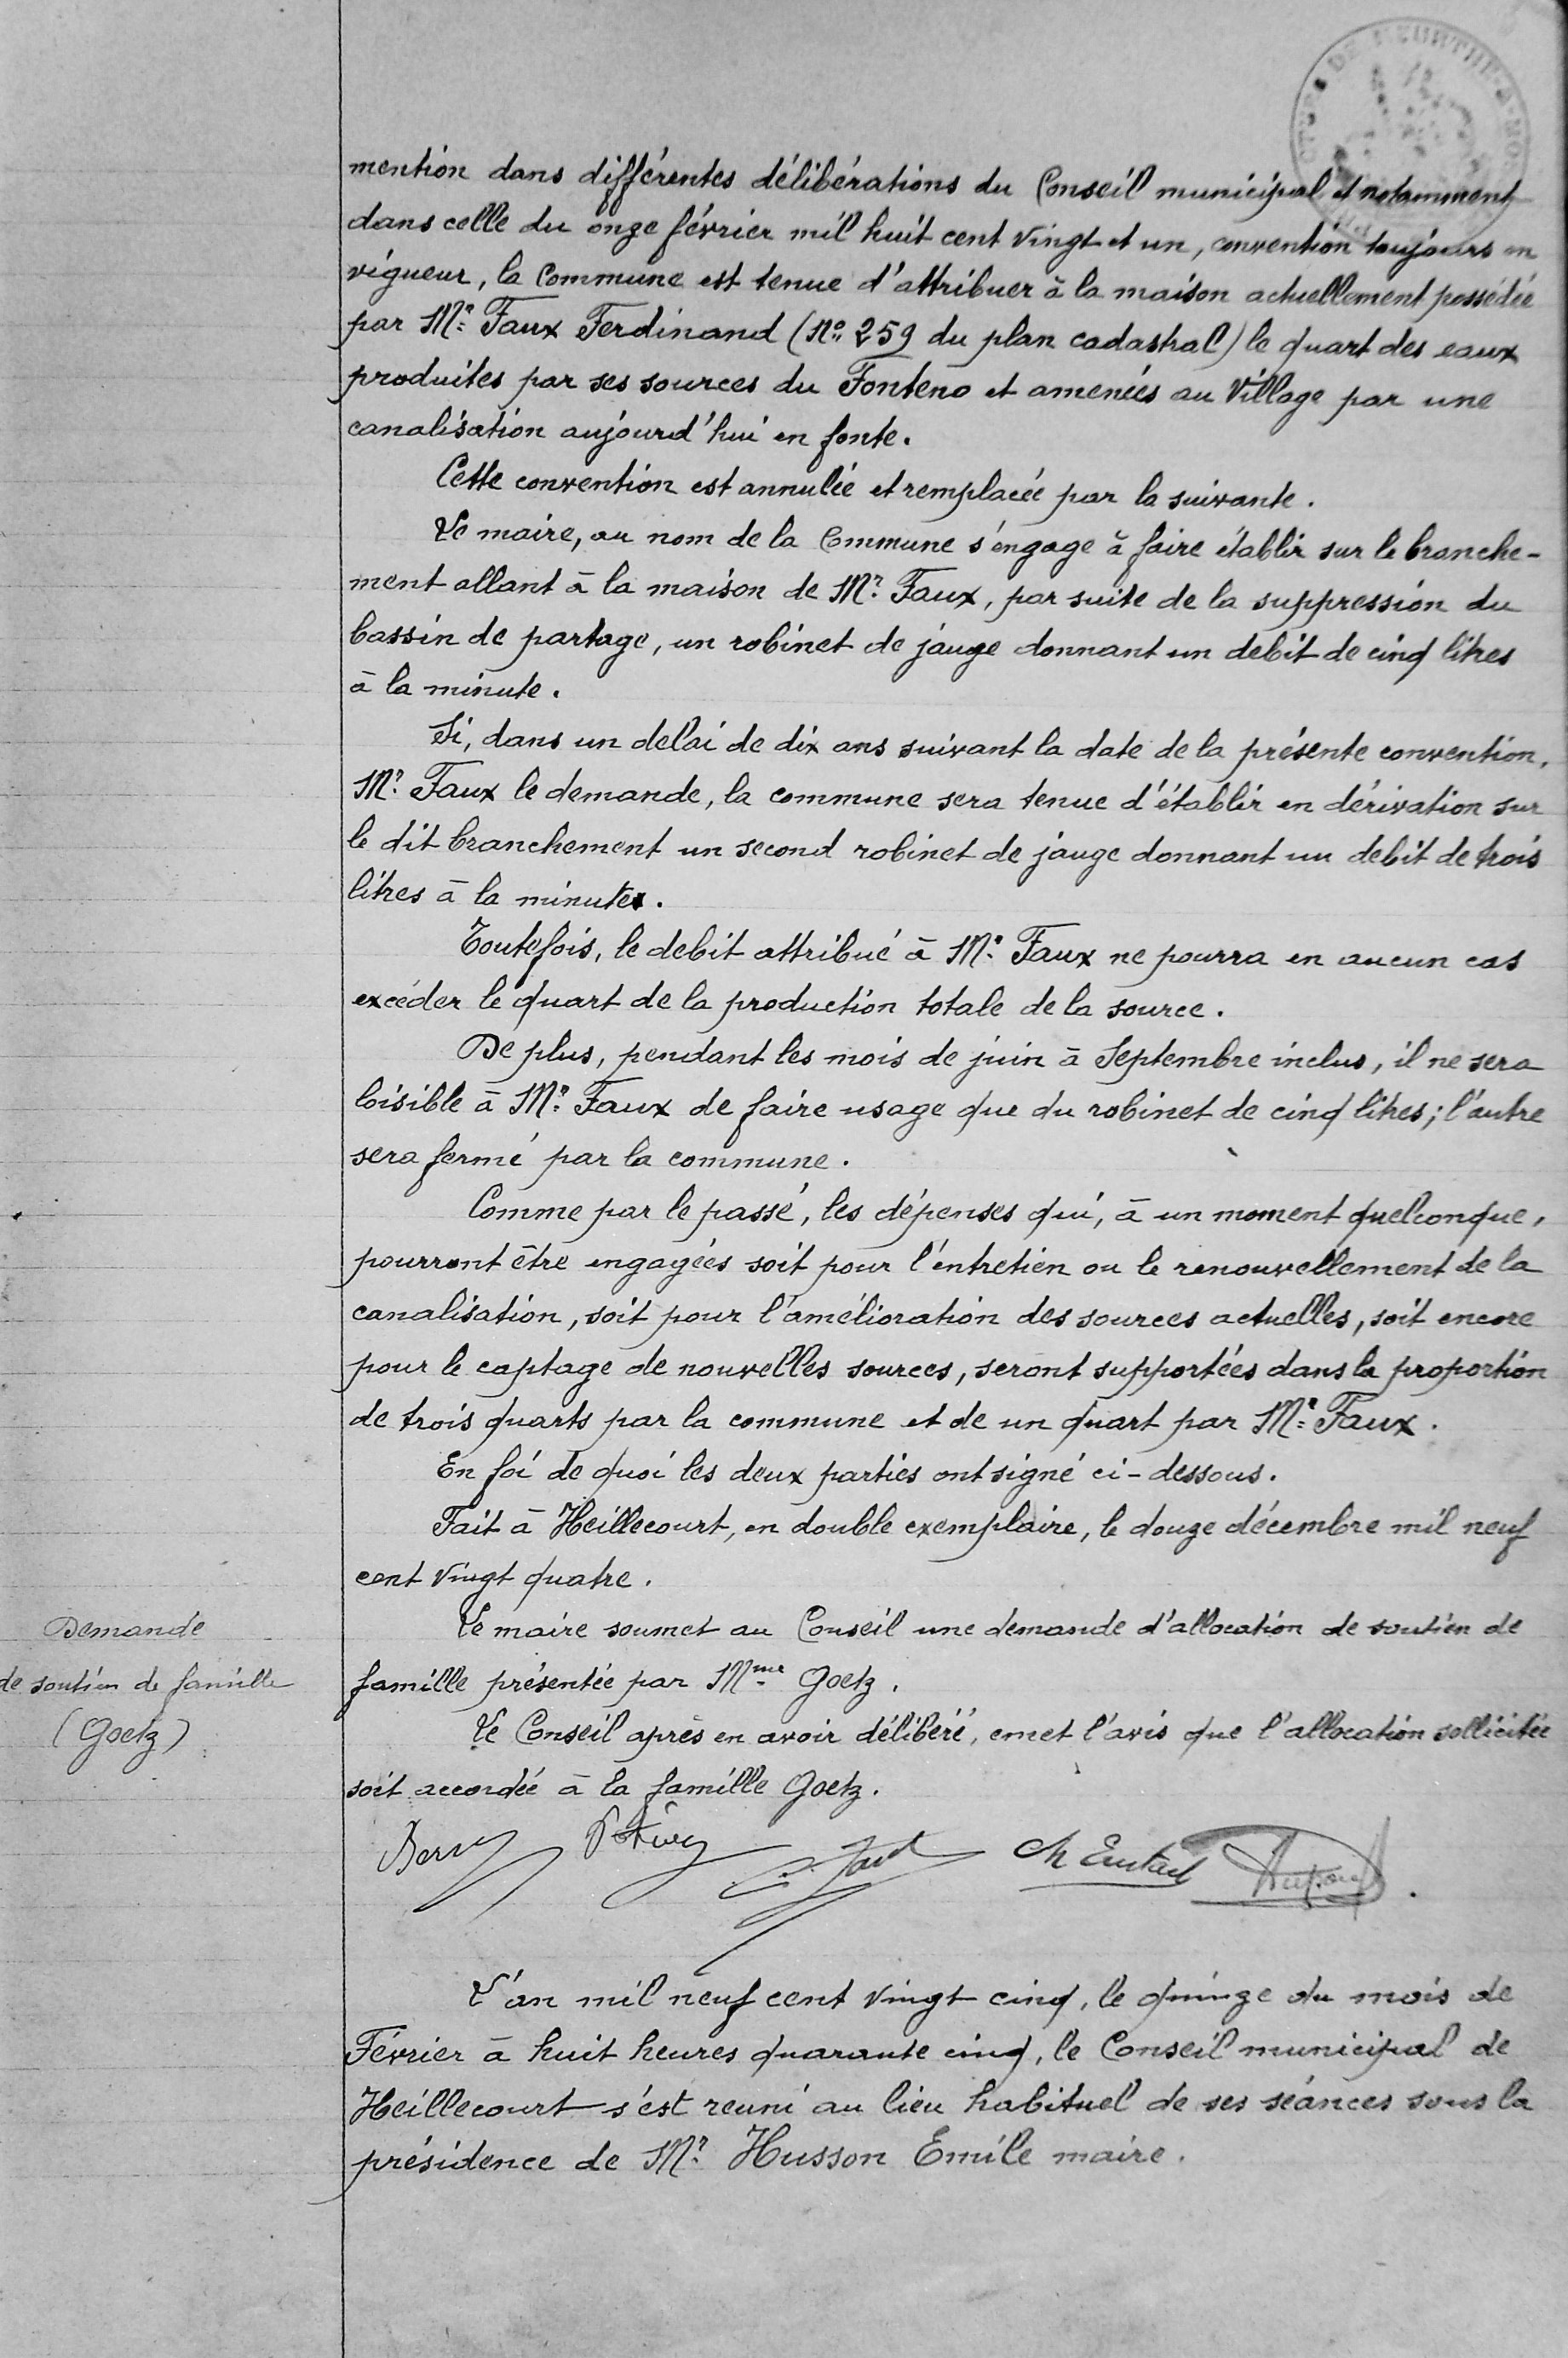 mention dans différentes délibérations du Conseil municipal et notamment
dans celle du onze février mil huit cent vingt et un, convention toujours en
vigueur, la Commune est tenue d'attribuer à la maison actuellement possédée
par Mr Faux Ferdinand (No 259 du plan cadastral) le quart des eaux
produites par ses sources du Fonteno et amenées au Village par une
canalisation aujourd'hui en fonte.
Cette convention est annulée et remplacée par la suivante.
Le maire, au nom de la Commune s'engage à faire établir sur le branche-
ment allant à la maison de Mr Faux, par suite de la suppression du
bassin de partage, un robinet de jauge donnant un debit de cinq litres
à la minute.
Si, dans un delai de dix ans suivant la date de la présente convention,
Mr Faux le demande, la commune sera tenue d'établir en dérivation sur
le dit branchement un second robinet de jauge donnant un debit de trois
litres à la minute.
Toutefois, le debit attribué à Mr Faux ne pourra en aucun cas
excéder le quart de la production totale de la source.
De plus, pendant les mois de juin à Septembre inclus, il ne sera
loisible à Mr Faux de faire usage que du robinet de cinq litres; l'autre
sera fermé par la commune.
Comme par le passé, les dépenses qui, à un moment quelconque,
pourront être engagées soit pour l'entretien ou le renouvellement de la
canalisation, soit pour l'amélioration des sources actuelles, soit encore
pour le captage de nouvelles sources, seront supportées dans la proportion
de trois quarts par la commune et de un quart par Mr Faux.
En foi de quoi les deux parties ont signé ci-dessous.
Fait à Heillecourt, en double exemplaire, le douze décembre mil neuf
cent vingt quatre.
Demande
de soutien de famille
(Goetz)
Le maire soumet au Conseil une demande d'allocation de soutien de
famille présentée par Mme Goetz.
Le Conseil après en avoir délibéré, emet l'avis que l'allocation sollicitée
soit accordée à la famille Goetz.
L'an mil neuf cent vingt cinq, le quinze du mois de
Février à huit heures quarante cinq, le Conseil municipal de
Heillecourt s'est reuni au lieu habituel de ses séances sous la
présidence de Mr Husson Emile maire.